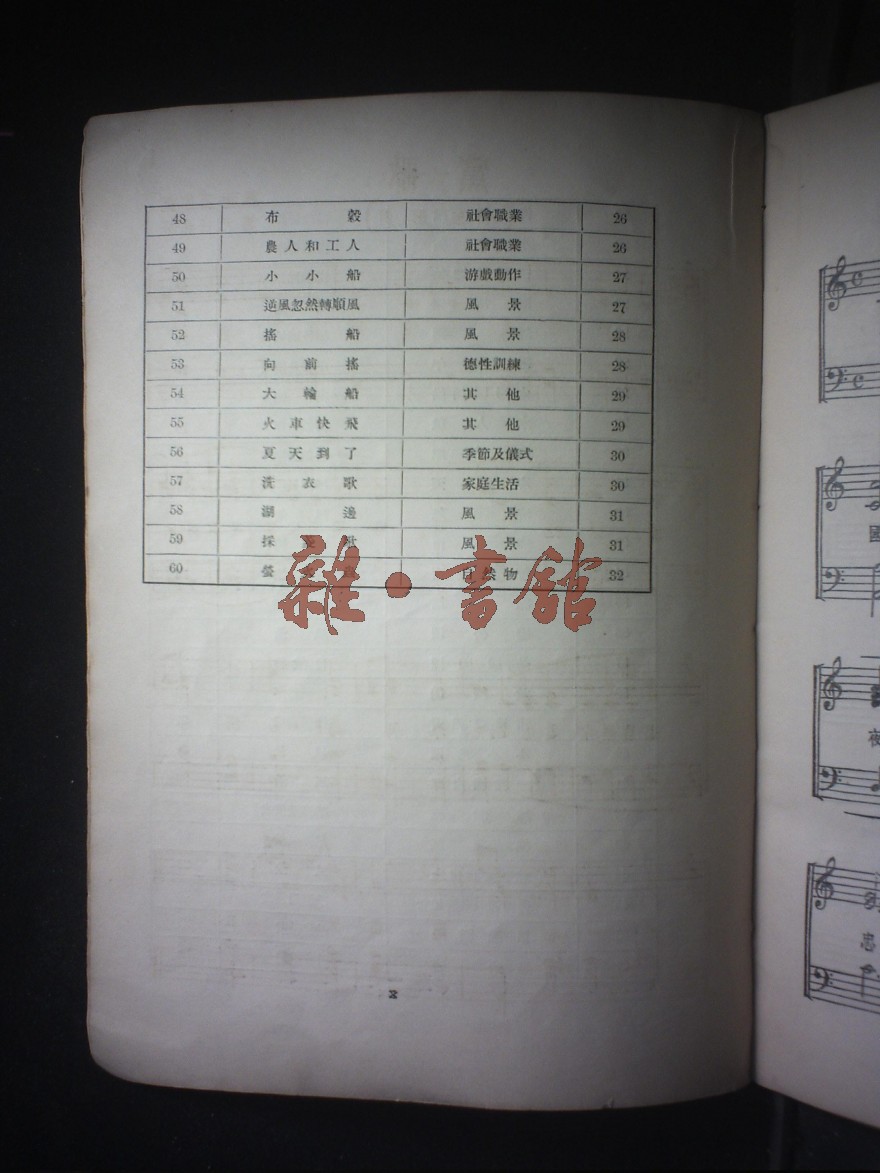 48 布穀 社會職業 26
49 農人和工人 社會職業 26
50 小小船 游戲動作 27
51 逆風忽然轉順風 風景 27
52 搖船 風景 28
53 向前搖 德性訓練 28
54 大輪船 其他 29
55 火車快飛 其他 29
56 夏天到了 季節及儀式 30
57 洗衣歌 家庭生活 30
58 湖邊 風景 31
59 採 風景 31
60 螢 物 32
雜·書館
國
夜
忠